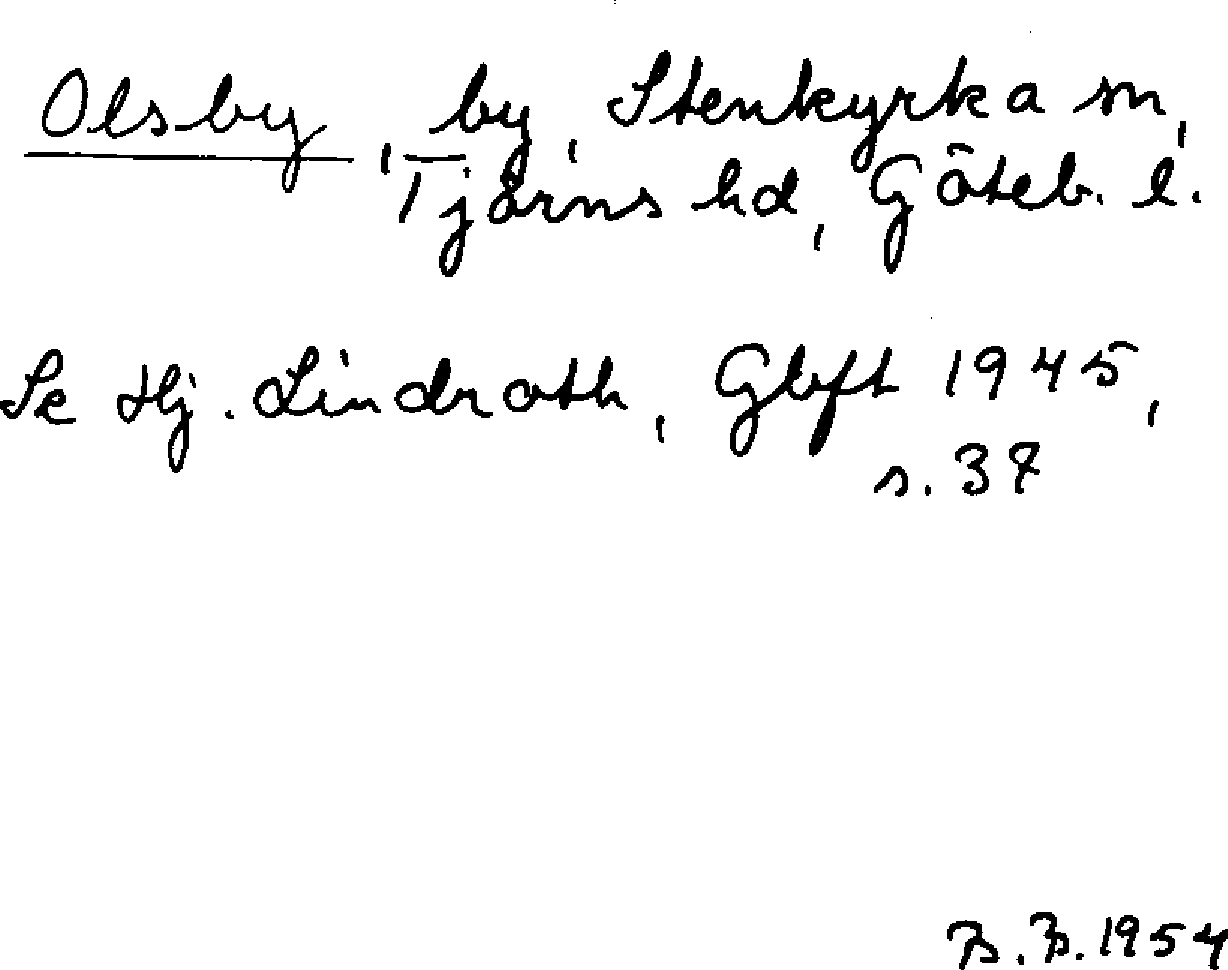 Olsby, by, Stenkyrka sn,
Tjörns hd, Göteb. l.
Se Hj. Lindroth, Gbft 1945,
s. 37
B. B. 1954